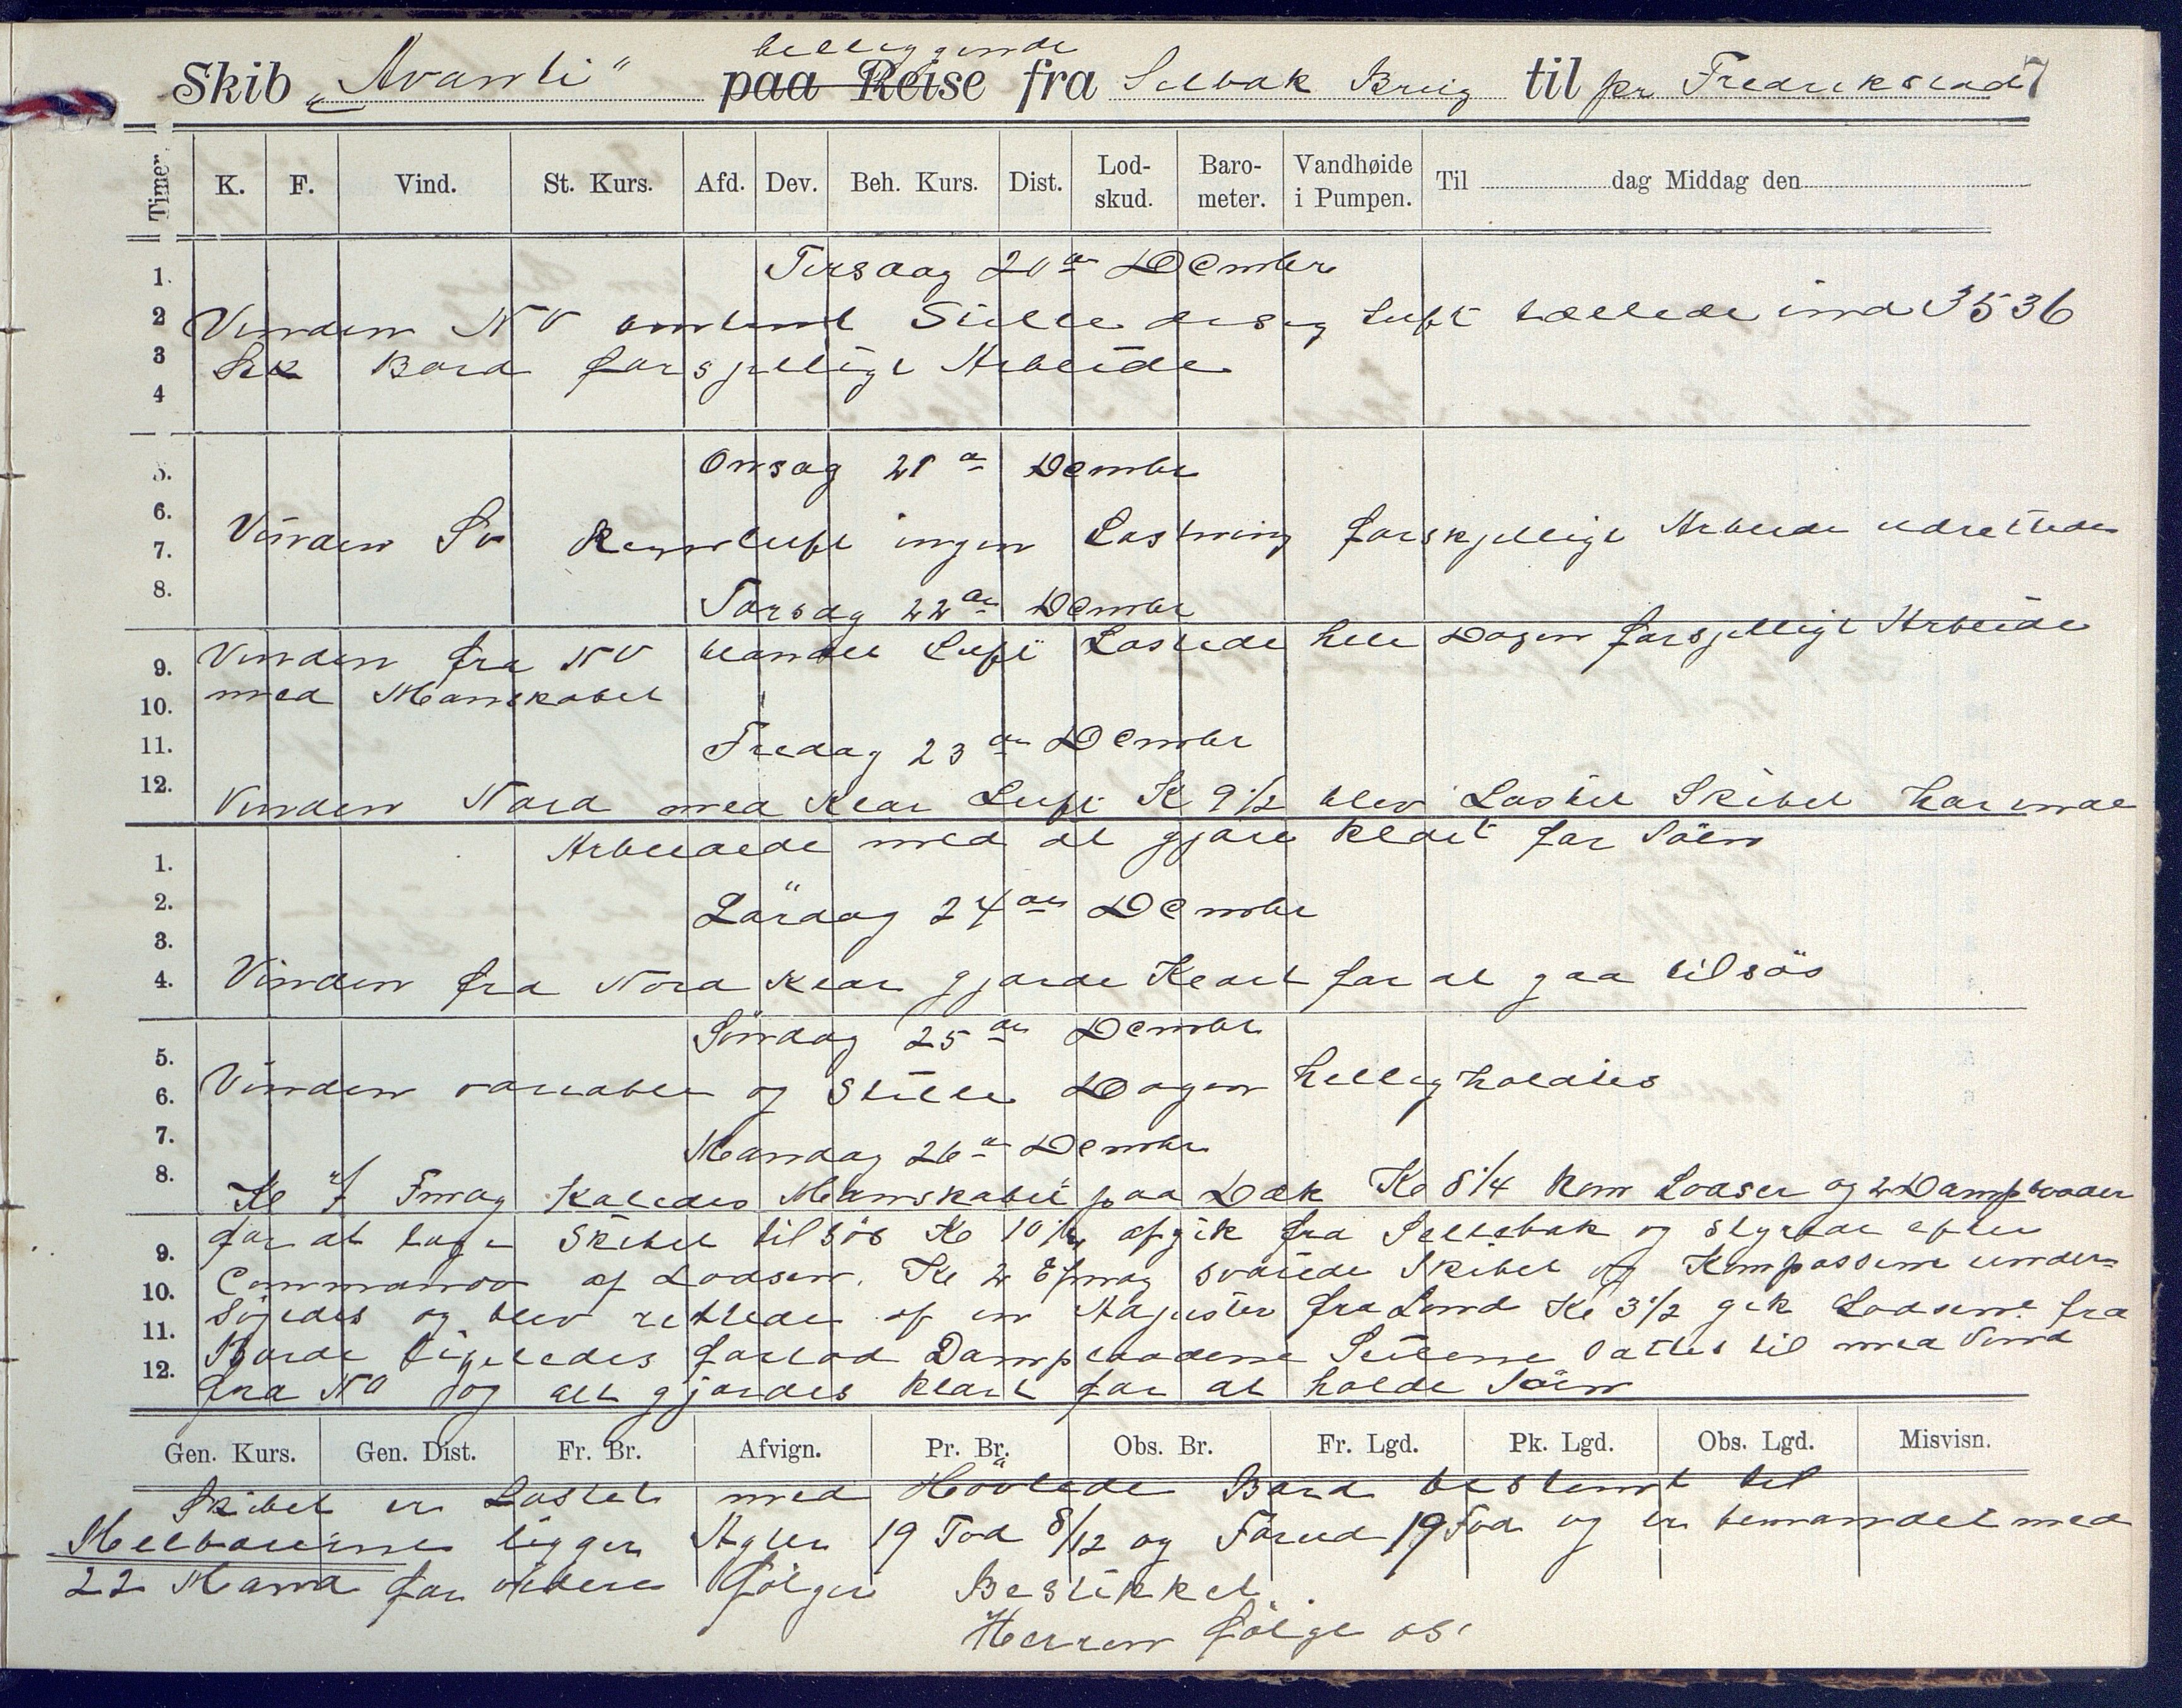 beliggende
Skib "Avanti" paa Reise fra Selbak Brug til pr Fredrikstad 7
Timer. K. F. Vind. St. Kurs. Afd. Dev. Beh. Kurs. Dist. Lod-skud. Baro-meter. Vandhøide i Pumpen. Til dag Middag den
1. Tirsdag 20de Decmbr
2 Vinden NV omtrent Stille disig Luft tællede ind 3536
3 Stk Bord forsjellige Arbeide
4
5. Onsdag 21de Decmbr
6.
7. Vinden SV Regnluft ingen Lastning forskjellige Arbeide udrettedes
8. Torsdag 22de Decmbr
9. Vinden fra NV blandet Luft Lastede hele Dagen forsjellige Arbeide
10. med Manskabet
11. Fredag 23de Decmbr
12. Vinden Nord med Klar Luft K 9 1/2 blev Lastet Skibet har inde
Arbeidede med at gjøre klart for Söen
1.
2. Lördag 24de Decmbr
3.
4. Vinden fra Nord klar gjorde Klart for at gaa tilsös
Söndag 25de Decmbr
5.
6. Vinden variabel og Stille Dagen helligholdtes
7. Mandag 26de Decmbr
8. Kl 7 Fmdag Kaledes Manskabet paa Dæk Kl 8 1/4 kom Lodser og 2 Dampbaader
for at tage Skibet tilsös Kl 10 1/2 afgik fra Sellebak og styrede efter
9. Commando af Lodsen. Kl 2 Efmdag svaiede Skibet og Kompassene under=
10. söjedes og blev rettede af en Adjuster fra Land Kl 3 1/2 gik Lodsene fra
11. Borde ligeledes forlod Dampbaadene Seilene sattes til med Vind
12. fra NO og alt gjordes klart for at holde Söen
Gen. Kurs. Gen. Dist. Fr. Br. Afvign. Pr. Br. Obs. Br. Fr. Lgd. Pk. Lgd. Obs. Lgd. Misvisn.
Skibet er Lastet med Hövlede Bord bestemt til
Melbourne ligger Agter 19 Fod 8/12 og Forud 19 Fod og er bemandet med
22 Mand for videre fölger Bestikket
Herren fölge os.